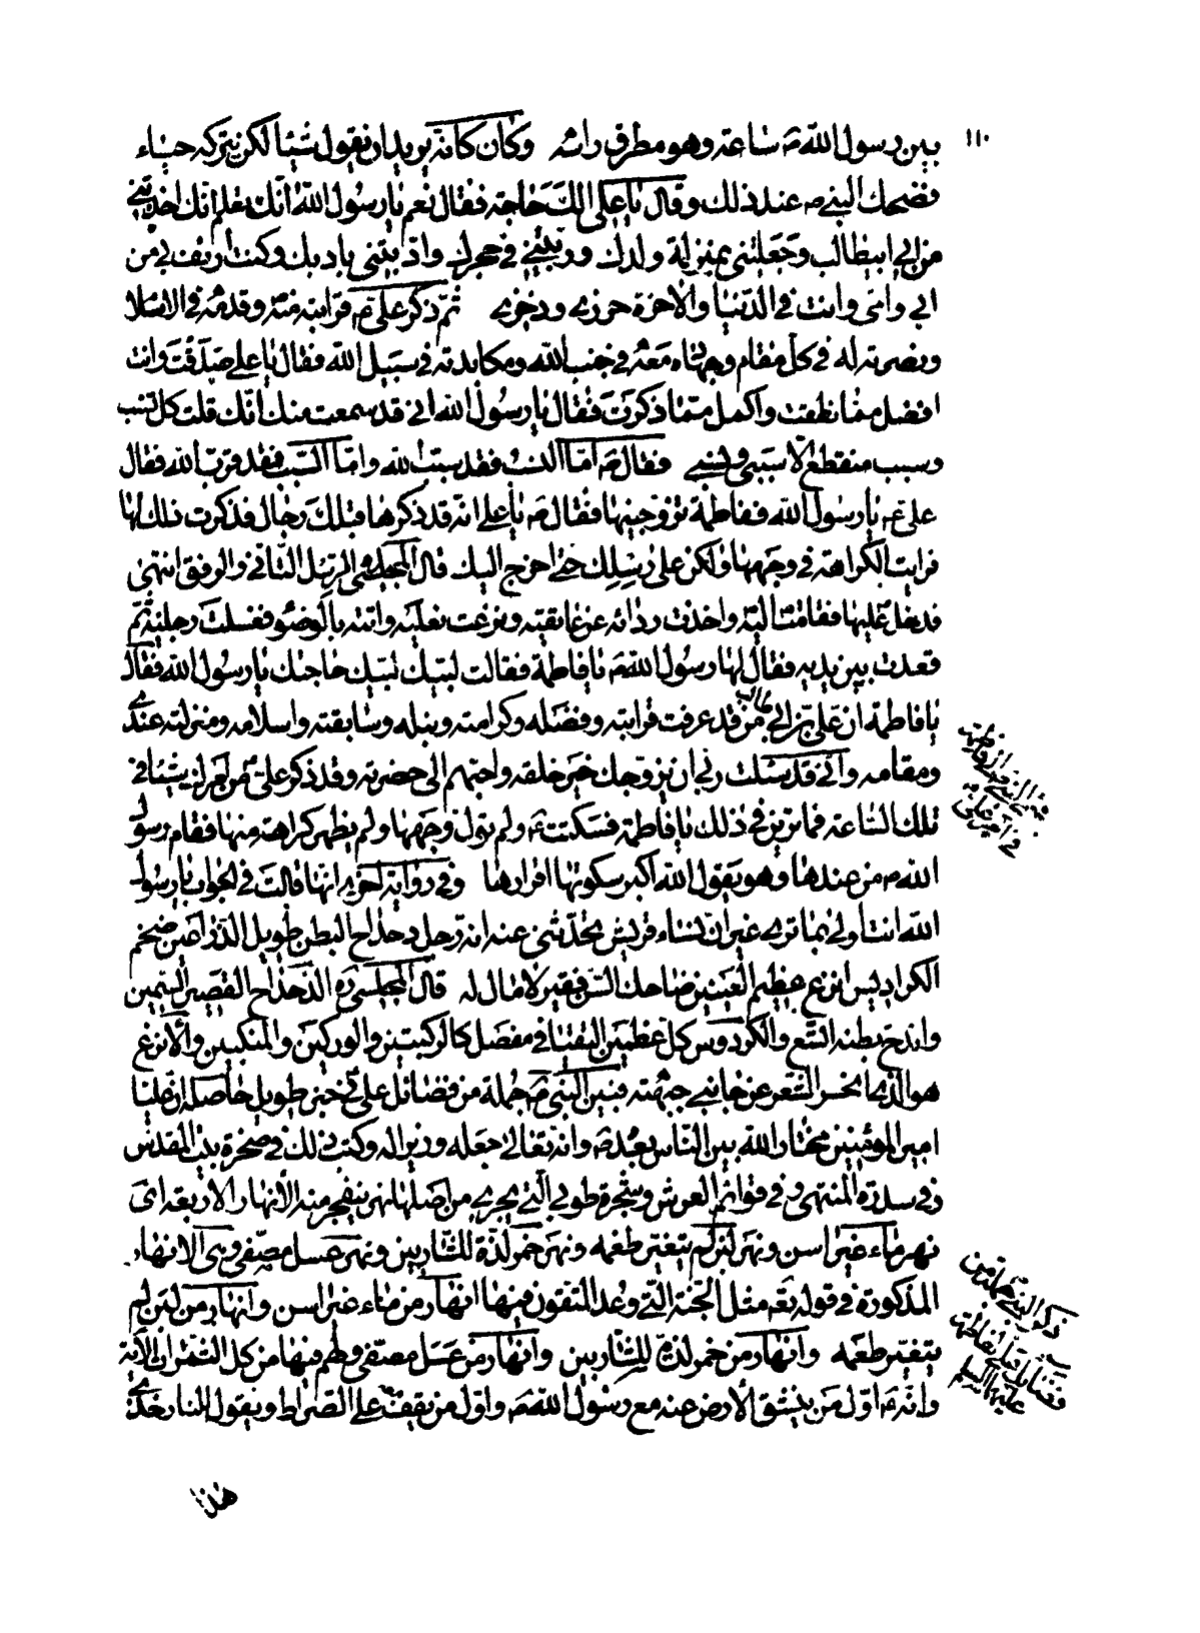 ١١٠
بين رسول الله ص ساعة وهو مطرق رأسه وكان كأنه يريد ان يقول شيئا لكن يتركه حياء
فضحك النبي ص عند ذلك وقال يا علي الك حاجة فقال نعم يا رسول الله انك تعلم انك اخذتني
من ابي ابيطالب وجعلتني بمنزلة ولدك وربيتني في حجرك وادبتني بادبك وكنت أرئف بي من
ابي وامي وانت في الدنيا والاخرة حرزي وذخري ثم ذكر علي ع قرابته منه وقدمه في الاسلا
ونصرته له في كل مقام وجهاده معه في جنب الله ومكابدته في سبيل الله فقال يا علي صدقت وانت
افضل مما نطقت واكمل مما ذكرت فقال يا رسول الله اني قد سمعت منك انك قلت كل نسب
وسبب منقطع الا سببي ونسبي فقال ص اما النسب فقد سبب الله واما السبب فقد قرب الله فقال
علي ع يا رسول الله ففاطمة تزوجنيها فقال ص يا علي انه قد ذكرها قبلك رجال فذكرت ذلك لها
فرايت الكراهة في وجهها ولكن على رسلك حتى اخرج اليك قال المجلسي الرسل التاني والرفق انتهى
فدخل عليها فقامت اليه واخذت ردائه عن عاتقه ونزعت نعليه واتته بالوضوء فغسلت رجليه ثم
قعدت بين يديه فقال لها رسول الله ص يا فاطمة فقالت لبيك لبيك حاجتك يا رسول الله فقال
يا فاطمة ان علي بن ابي طالب من قد عرفت قرابته وفضله وكرامته ونبله وسابقته واسلامه ومنزلته عندي
ومقامه واني قد سئلت ربي ان يزوجك خير خلقه واحبهم الى حضرته وقد ذكر علي من امرك شيئا في
تلك الساعة فما ترين في ذلك يا فاطمة فسكتت ع ولم تول وجهها ولم يظهر كراهة منها فقام رسول
الله ص من عندها وهو يقول الله اكبر سكوتها اقرارها وفي رواية اخرى انها قالت في الجواب يا رسول
الله انت اولى بما ترى غير ان نساء قريش يحدثنني عنه انه رجل دحداح البطن طويل الذراعين ضخم
الكراديس انزع عظيم العينين ضاحك السن فقير لا مال له قال المجلسي ره الدحداح القصير السمين
واندح بطنه اتسع والكردوس كل عظمين التقتا في مفصل كالركبتين والوركين والمنكبين والانزع
هو الذي انحسر الشعر عن جانبي جبهته فبين النبي ص جملة من فضائل علي ع في خبر طويل حاصله ان عليا
امير المؤمنين مختار الله بين الناس بعده ص وانه تعالى جعله وزيرا له وكتب ذلك في صخرة بيت المقدس
وفي سدرة المنتهى وفي قوائم العرش وشجرة طوبى التي يجري من اصلها نهر ينفجر منه الأنهار الاربعة اى
نهر ماء غير اسن ونهر لبن لم يتغير طعمه ونهر خمر لذة للشاربين ونهر عسل مصفى وهى الانهار
المذكورة في قوله تع مثل الجنة التي وعد المتقون فيها انهار من ماء غير اسن وانهار من لبن لم
يتغير طعمه وانهار من خمر لذة للشاربين وانهار من عسل مصفى ولهم فيها من كل الثمرات الآية
وانه ع اول من ينشق الأرض عنه مع رسول الله ص واول من يقف معه على الصراط ويقول للنار خذي
ذكر النبي ص جملة من
فضائل علي لفاطمة
عليهما السلام
هذا